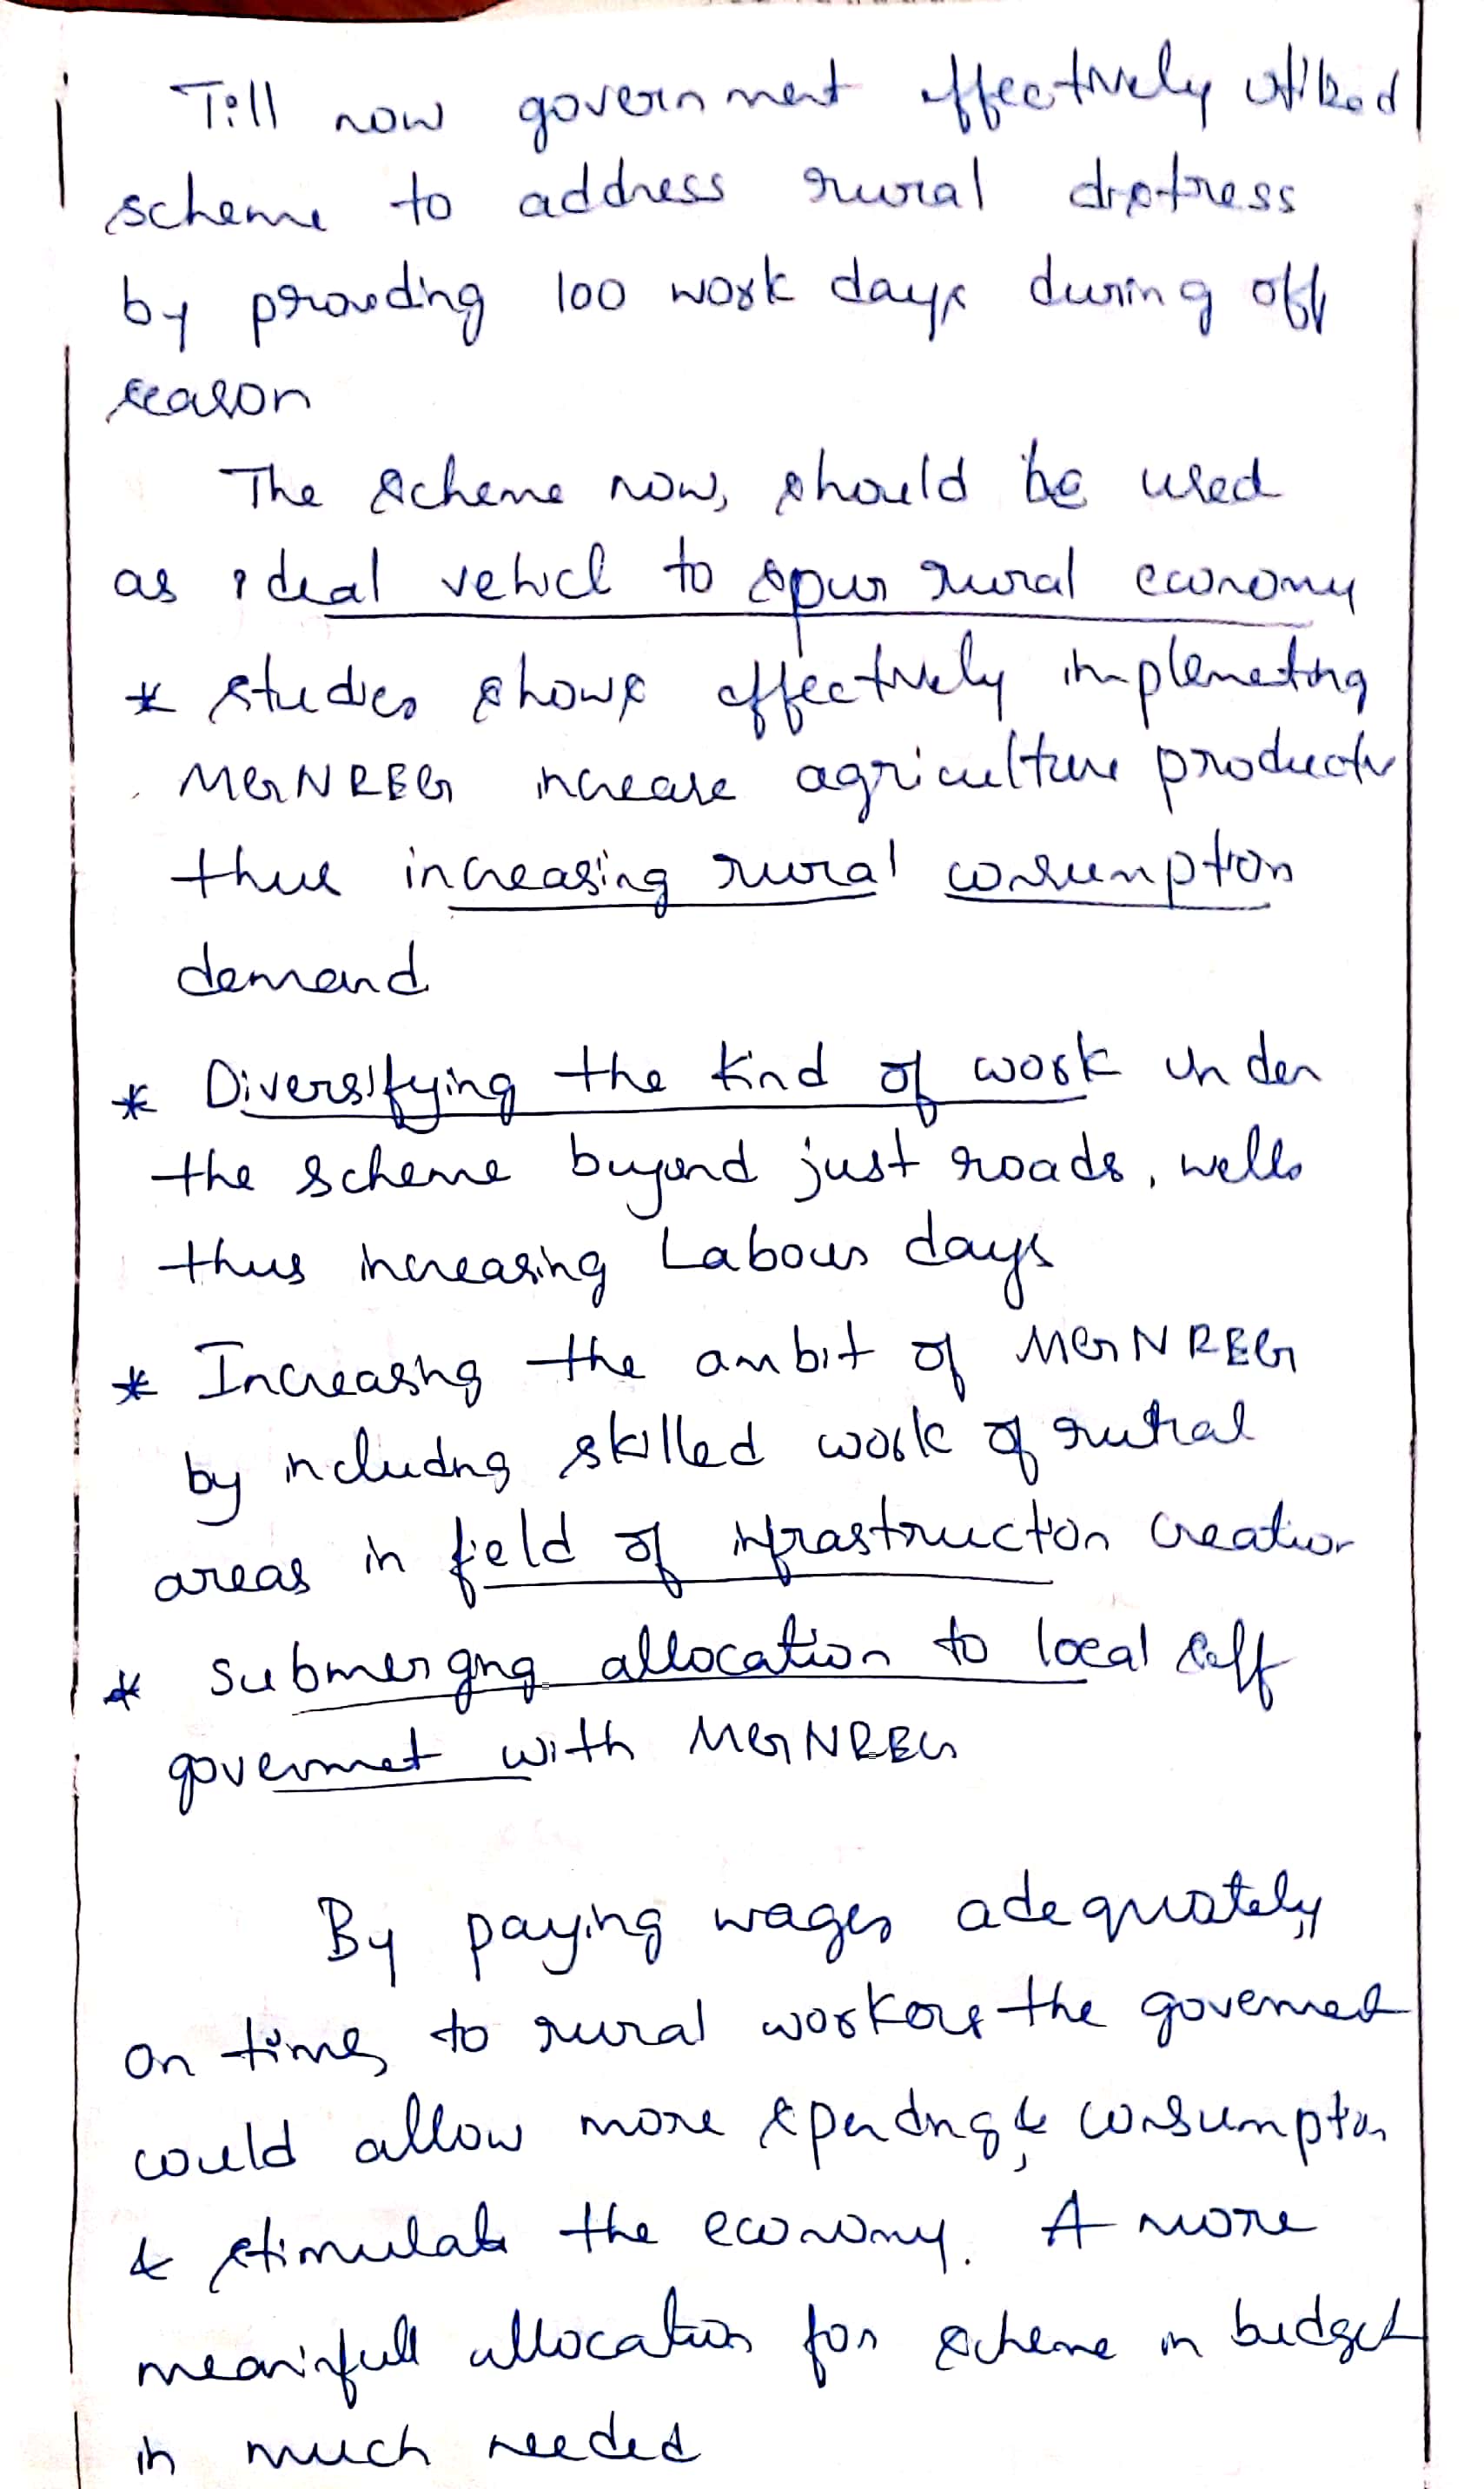 Till now government effectively utilised
scheme to address rural distress
by providing 100 work days during off
season
The scheme now, should be used
as ideal vehicl to spur rural economy
* studies shows effectively implementing
MGNREG increase agriculture productv
thus increasing rural consumption
demand
* Diversifying the kind of work under
the scheme buyond just roads, wells
thus increasing Labour days
* Increasing the ambit of MGNREG
by including skilled work of rural
areas in field of infrastruction creation
* Submerging allocation to local self
governmet with MGNREG
By paying wages adequately
on time, to rural workers the governmet
could allow more spending & consumption
& stimulate the economy. A more
meaninfull allocation for scheme in budget
in much needed